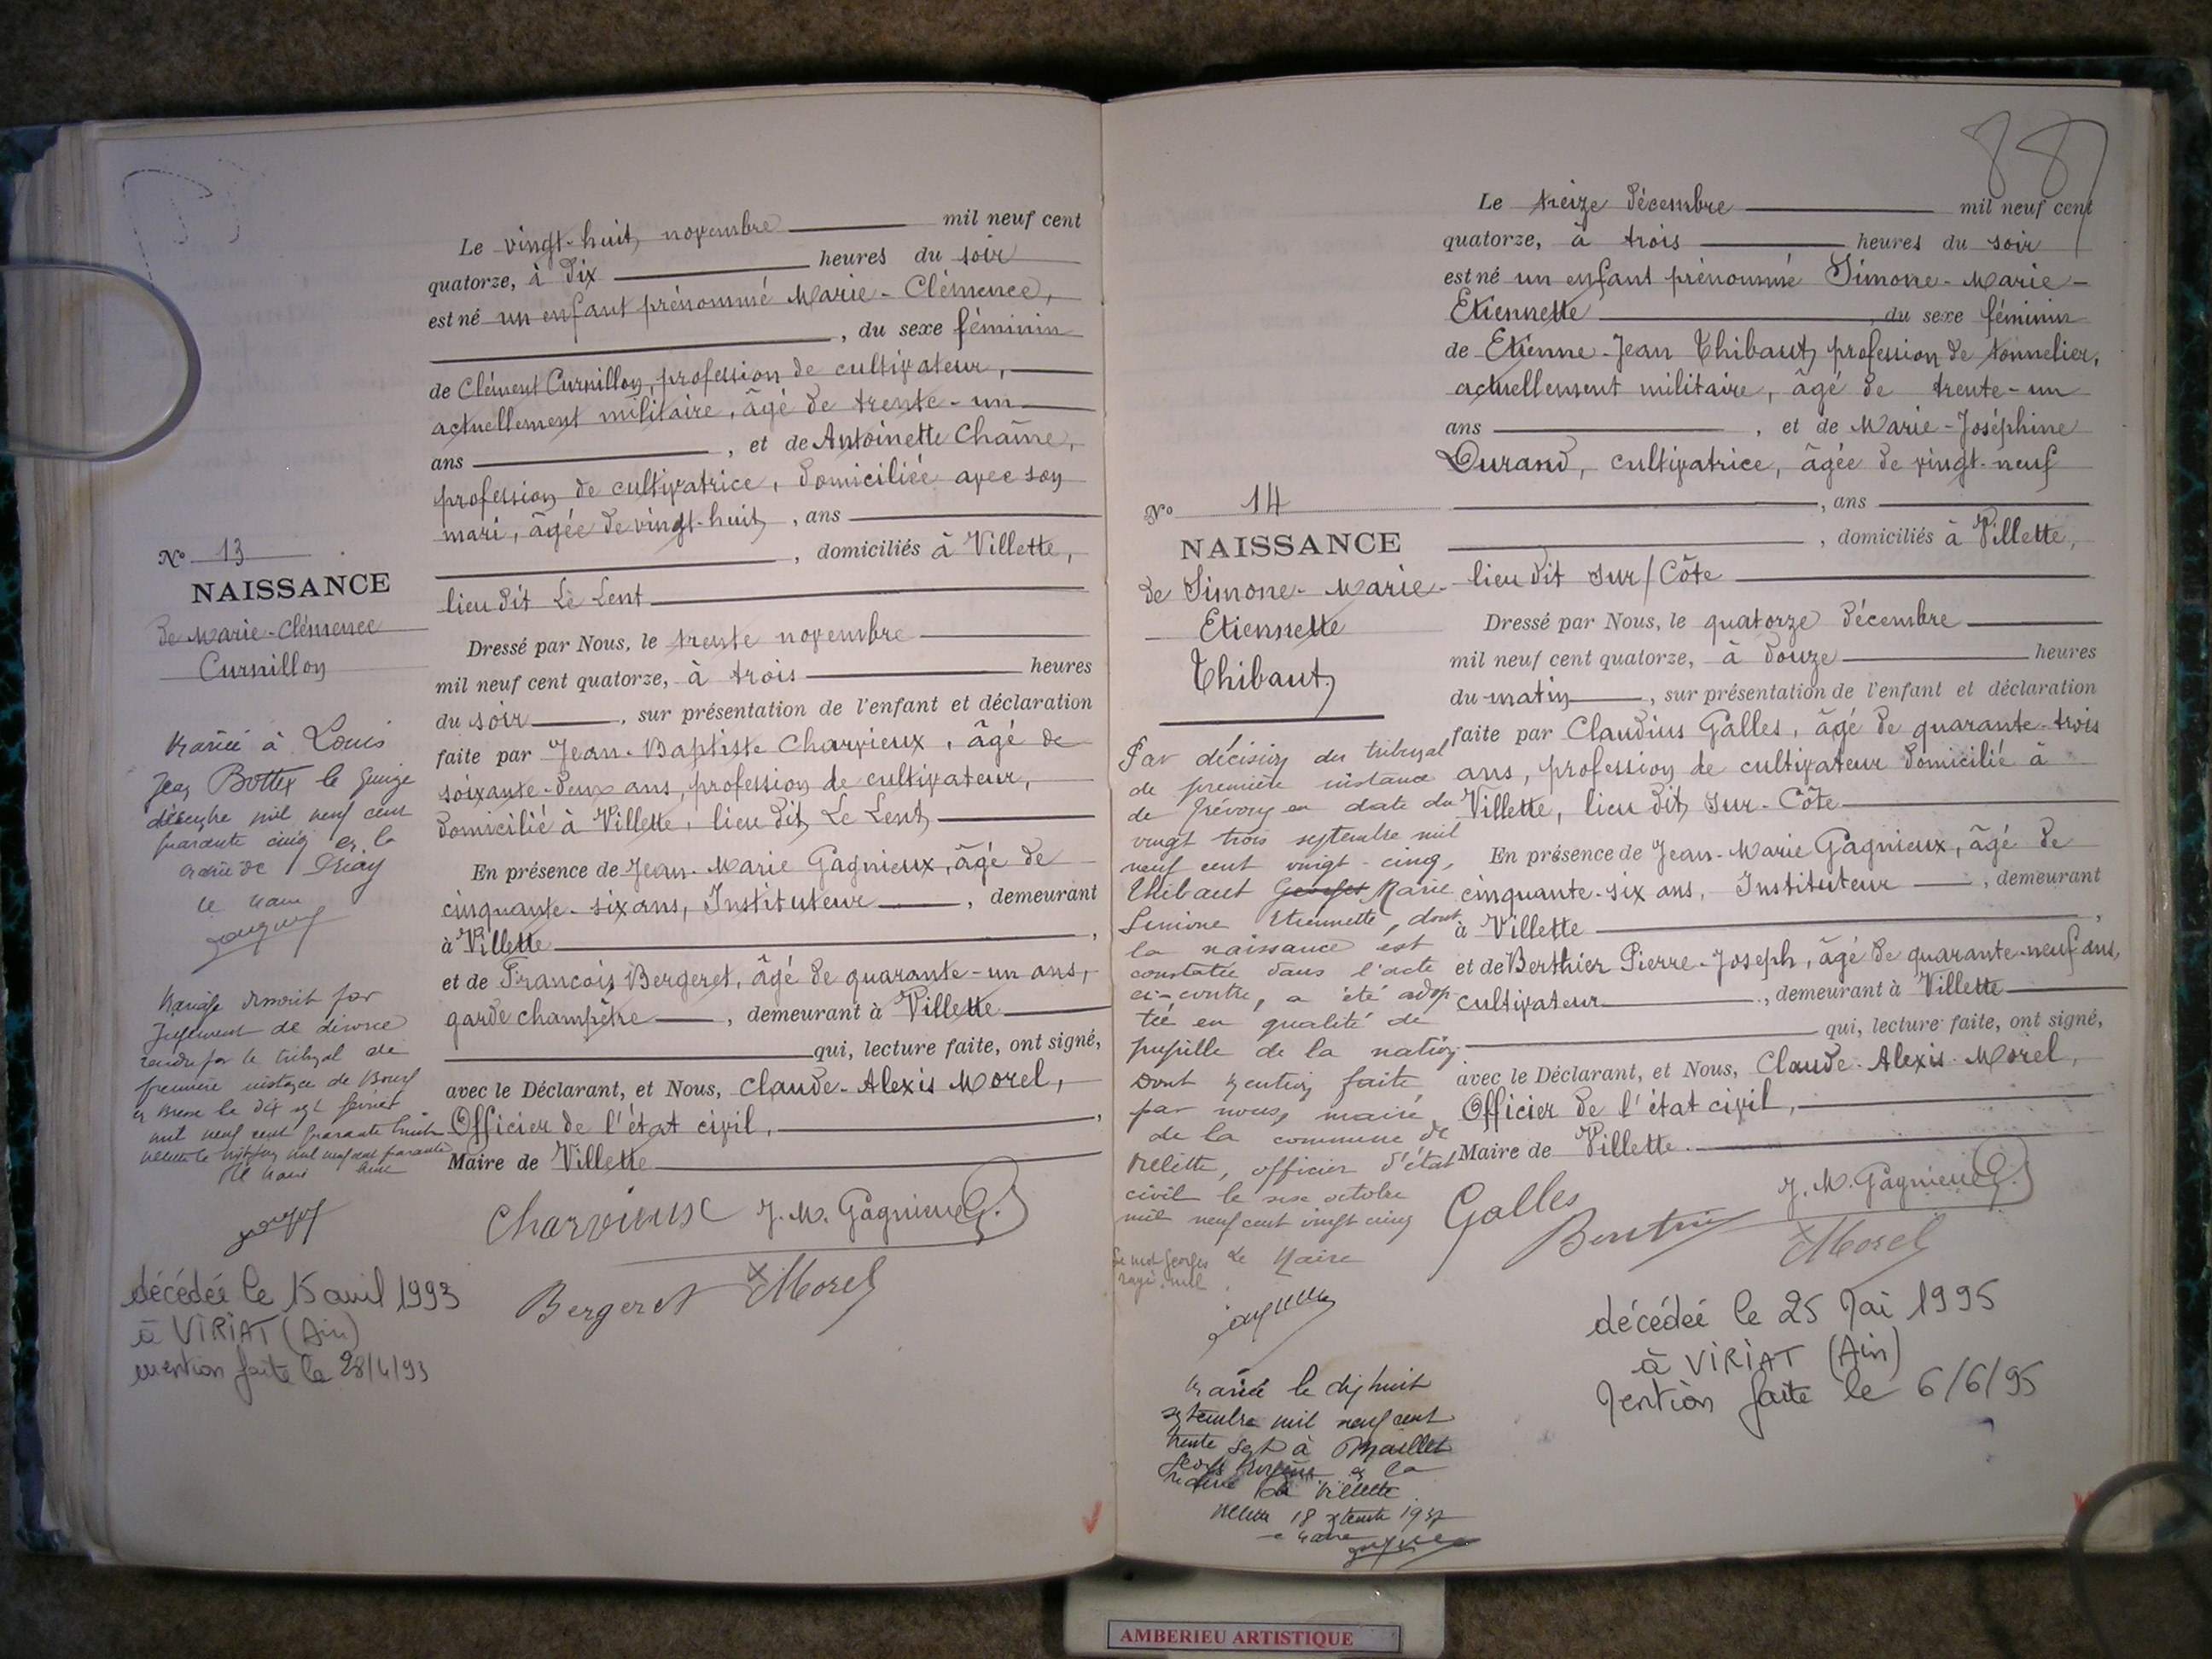 Le vingt-huit novembre mil neuf cent
quatorze, à dix heures du soir
est né un enfant prénommé Marie-Clémence,
, du sexe féminin
de Clément Curnillon, profession de cultivateur,
actuellement militaire, âgé de trente-un
ans , et de Antoinette Chaîne,
profession de cultivatrice, domiciliée avec son
mari, âgée de vingt-huit , ans
, domiciliés à Villette,
lieu dit Le Lent
Dressé par Nous, le trente novembre
mil neuf cent quatorze, à trois heures
du soir , sur présentation de l'enfant et déclaration
faite par Jean-Baptiste Charvieux, âgé de
soixante-deux ans, profession de cultivateur,
domicilié à Villette, lieu dit Le Lent
En présence de Jean-Marie Gagnieux, âgé de
cinquante-six ans, Instituteur , demeurant
à Villette ,
et de François Bergeret, âgé de quarante-un ans,
garde champêtre , demeurant à Villette
qui, lecture faite, ont signé,
avec le Déclarant, et Nous, Claude-Alexis Morel,
Officier de l'état civil, ,
Maire de Villette
Charvieux J. M. Gagnieux
Bergeret Morel
No 13
NAISSANCE
de Marie-Clémence
Curnillon
Marié à Louis
Jean Bottex le quinze
décembre mil neuf cent
quarante cinq en la
mairie de Priay
Le Maire
Mariage dissout par
Jugement de divorce
rendu par le tribunal de
première instance de Bourg
en Bresse le dix sept février
mil neuf cent quarante huit
Le Maire
décédée le 15 avril 1993
à VIRIAT (Ain)
mention faite le 28/4/93
87
Le treize décembre mil neuf cent
quatorze, à trois heures du soir
est né un enfant prénommé Simone-Marie-
Etiennette , du sexe féminin
de Etienne-Jean Thibaut, profession de tonnelier,
actuellement militaire, âgé de trente-un
ans , et de Marie-Joséphine
Durand, cultivatrice, âgée de vingt-neuf
, ans
, domiciliés à Villette,
lieu dit Sur/Côte
Dressé par Nous, le quatorze décembre
mil neuf cent quatorze, à douze heures
du matin , sur présentation de l'enfant et déclaration
faite par Claudius Galles, âgé de quarante-trois
ans, profession de cultivateur domicilié à
Villette, lieu dit Sur-Côte
En présence de Jean-Marie Gagnieux, âgé de
cinquante-six ans, Instituteur , demeurant
à Villette ,
et de Berthier Pierre-Joseph, âgé de quarante-neuf ans,
cultivateur , demeurant à Villette
qui, lecture faite, ont signé,
avec le Déclarant, et Nous, Claude-Alexis Morel,
Officier de l'état civil,
Maire de Villette.
Galles J. M. Gagnieux
Berthier Morel
No 14
NAISSANCE
de Simone-Marie-
Etiennette
Thibaut
Par décision du tribunal
de première instance
de Trévoux en date du
vingt trois septembre mil
neuf cent vingt-cinq,
Thibaut Georges Marie
Simone Etiennette, dont
la naissance est
constatée dans l'acte
ci-contre, a été adop
tée en qualité de
pupille de la nation
Dont mention faite
par nous, maire
de la commune de
Villette, officier d'état
civil le six octobre
mil neuf cent vingt cinq
Le mot Georges Le Maire
rayé nul
Marié le dix huit
septembre mil neuf cent
trente sept à Maillet
en la
mairie de Villette
Villette 18 septembre 1937
Le Maire
décédée le 25 Mai 1995
à VIRIAT (Ain)
Mention faite le 6/6/95
AMBERIEU ARTISTIQUE